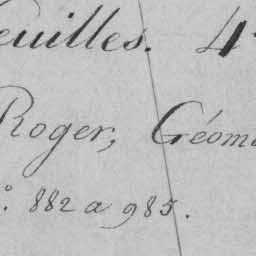 euilles. 4
Roger, Géom
º. 882 a 985.